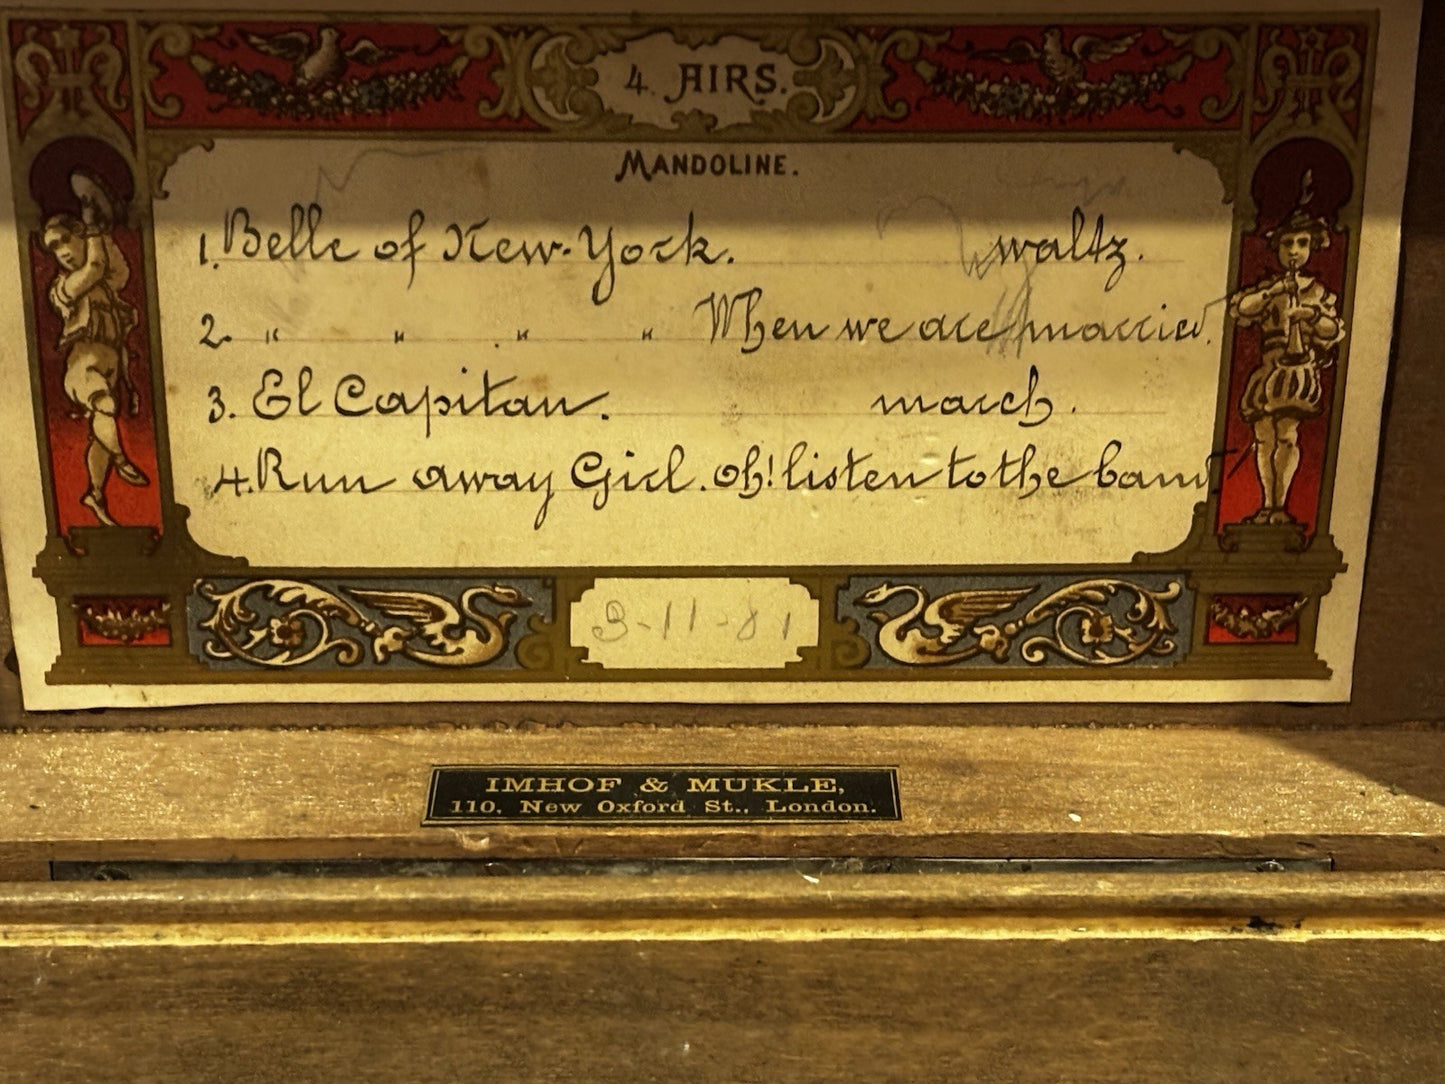 4. AIRS.
MANDOLINE.
1. Belle of New-York. waltz.
2. " " " " When we are married.
3. El Capitan. march.
4. Run away Girl. oh! listen to the band!
IMHOF & MUKLE,
110, New Oxford St., London.